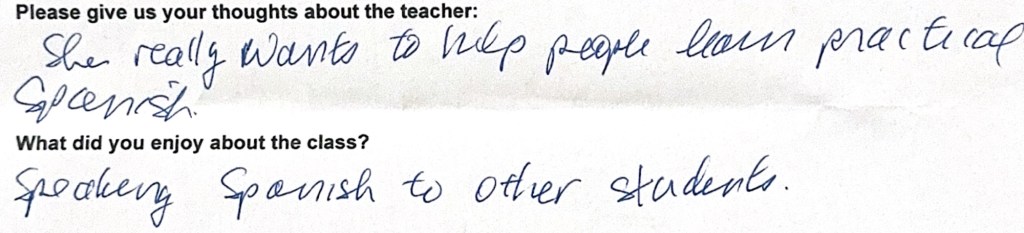 Please give us your thoughts about the teacher:
She really wants to help people learn practical
Spanish.
What did you enjoy about the class?
Speaking Spanish to other students.